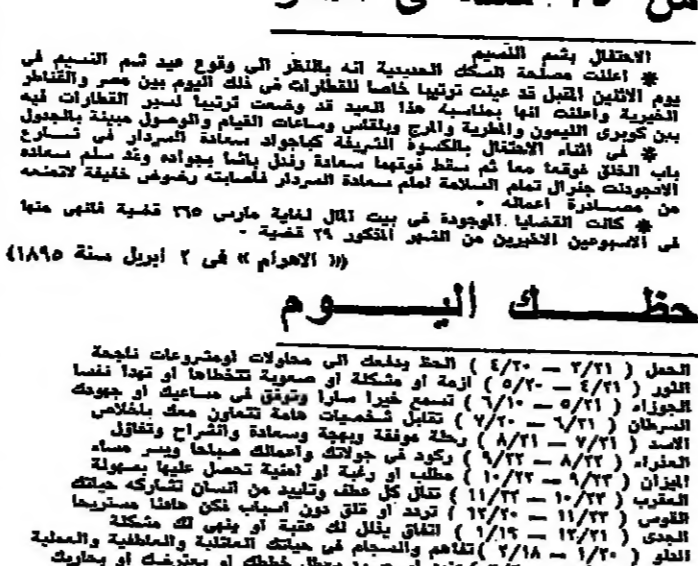 من
الاحتفال بشم النسيم
* اعلنت مصلحة السكك الحديدية انه بالنظر الى وقوع عيد شم النسيم فى
يوم الاثنين المقبل قد عينت ترتيبا خاصا للقطارات فى ذلك اليوم بين مصر والقناطر
الخيرية واعلنت انها بمناسبة هذا العيد قد وضعت ترتيبا لسير القطارات فيه
بين كوبرى الليمون والمطرية والمرج وبلقاس وساعات القيام والوصول مبينة بالجدول
* فى اثناء الاحتفال بالكسوة الشريفة كباجواد سعادة السردار فى شارع
باب الخلق فوقعا معا ثم سقط فوقهما سعادة رفدل باشا بجواده وقد سلم سعاده
الاجودنت جنرال تمام السلامة امام سعادة السردار فأصابته رضوض خفيفة لاتمنعه
من مصادرة اعماله ٠
* كانت القضايا الموجودة فى بيت المال لغاية مارس ٢٦٥ قضية فانهى منها
فى الاسبوعين الاخيرين من الشهر المذكور ٢٩ قضية ٠
(( الاهرام » فى ٢ ابريل سنة ١٨٩٥)
حظك اليوم
الحمل ( ٣/٢١ — ٤/٢٠ ) الحظ يدفعك الى محاولات اومشروعات ناجحة
الثور ( ٤/٢١ — ٥/٢٠ ) ازمة او مشكلة أو صعوبة تتخطاها او تهدا نفسا
الجوزاء ( ٥/٢١ — ٦/٢٠ ) تسمع خيرا سارا وتوفق فى مساعيك أو جهودك
السرطان ( ٦/٢١ — ٧/٢٠ ) تقابل شخصيات هامة تتعاون معك باخلاص
الاسد ( ٧/٢١ — ٨/٢١ ) رحلة موفقة وبهجة وسعادة وانشراح وتفاؤل
العذراء ( ٨/٢٢ — ٩/٢٢ ) ركود فى جولاتك واعمالك صباحا ويسر مساء
الميزان ( ٩/٢٣ — ١٠/٢٢ ) مطلب او رغبة او امنية تحصل عليها بسهولة
العقرب ( ١٠/٢٣ — ١١/٢٢ ) تنال كل عطف وتاييد من انسان تشاركه حياتك
القوس ( ١١/٢٣ — ١٢/٢٠ ) تردد او قلق دون أسباب فكن هادئا مستريحا
الجدى ( ١٢/٢١ — ١/١٩ ) اتفاق يذلل لك عقبة او ينهى لك مشكلة
الدلو ( ١/٢٠ — ٢/١٨ ) تفاهم وانسجام فى حياتك العائلية والعاطفية والعملية
يعطل خططك أو يعترضك أو يحاربك